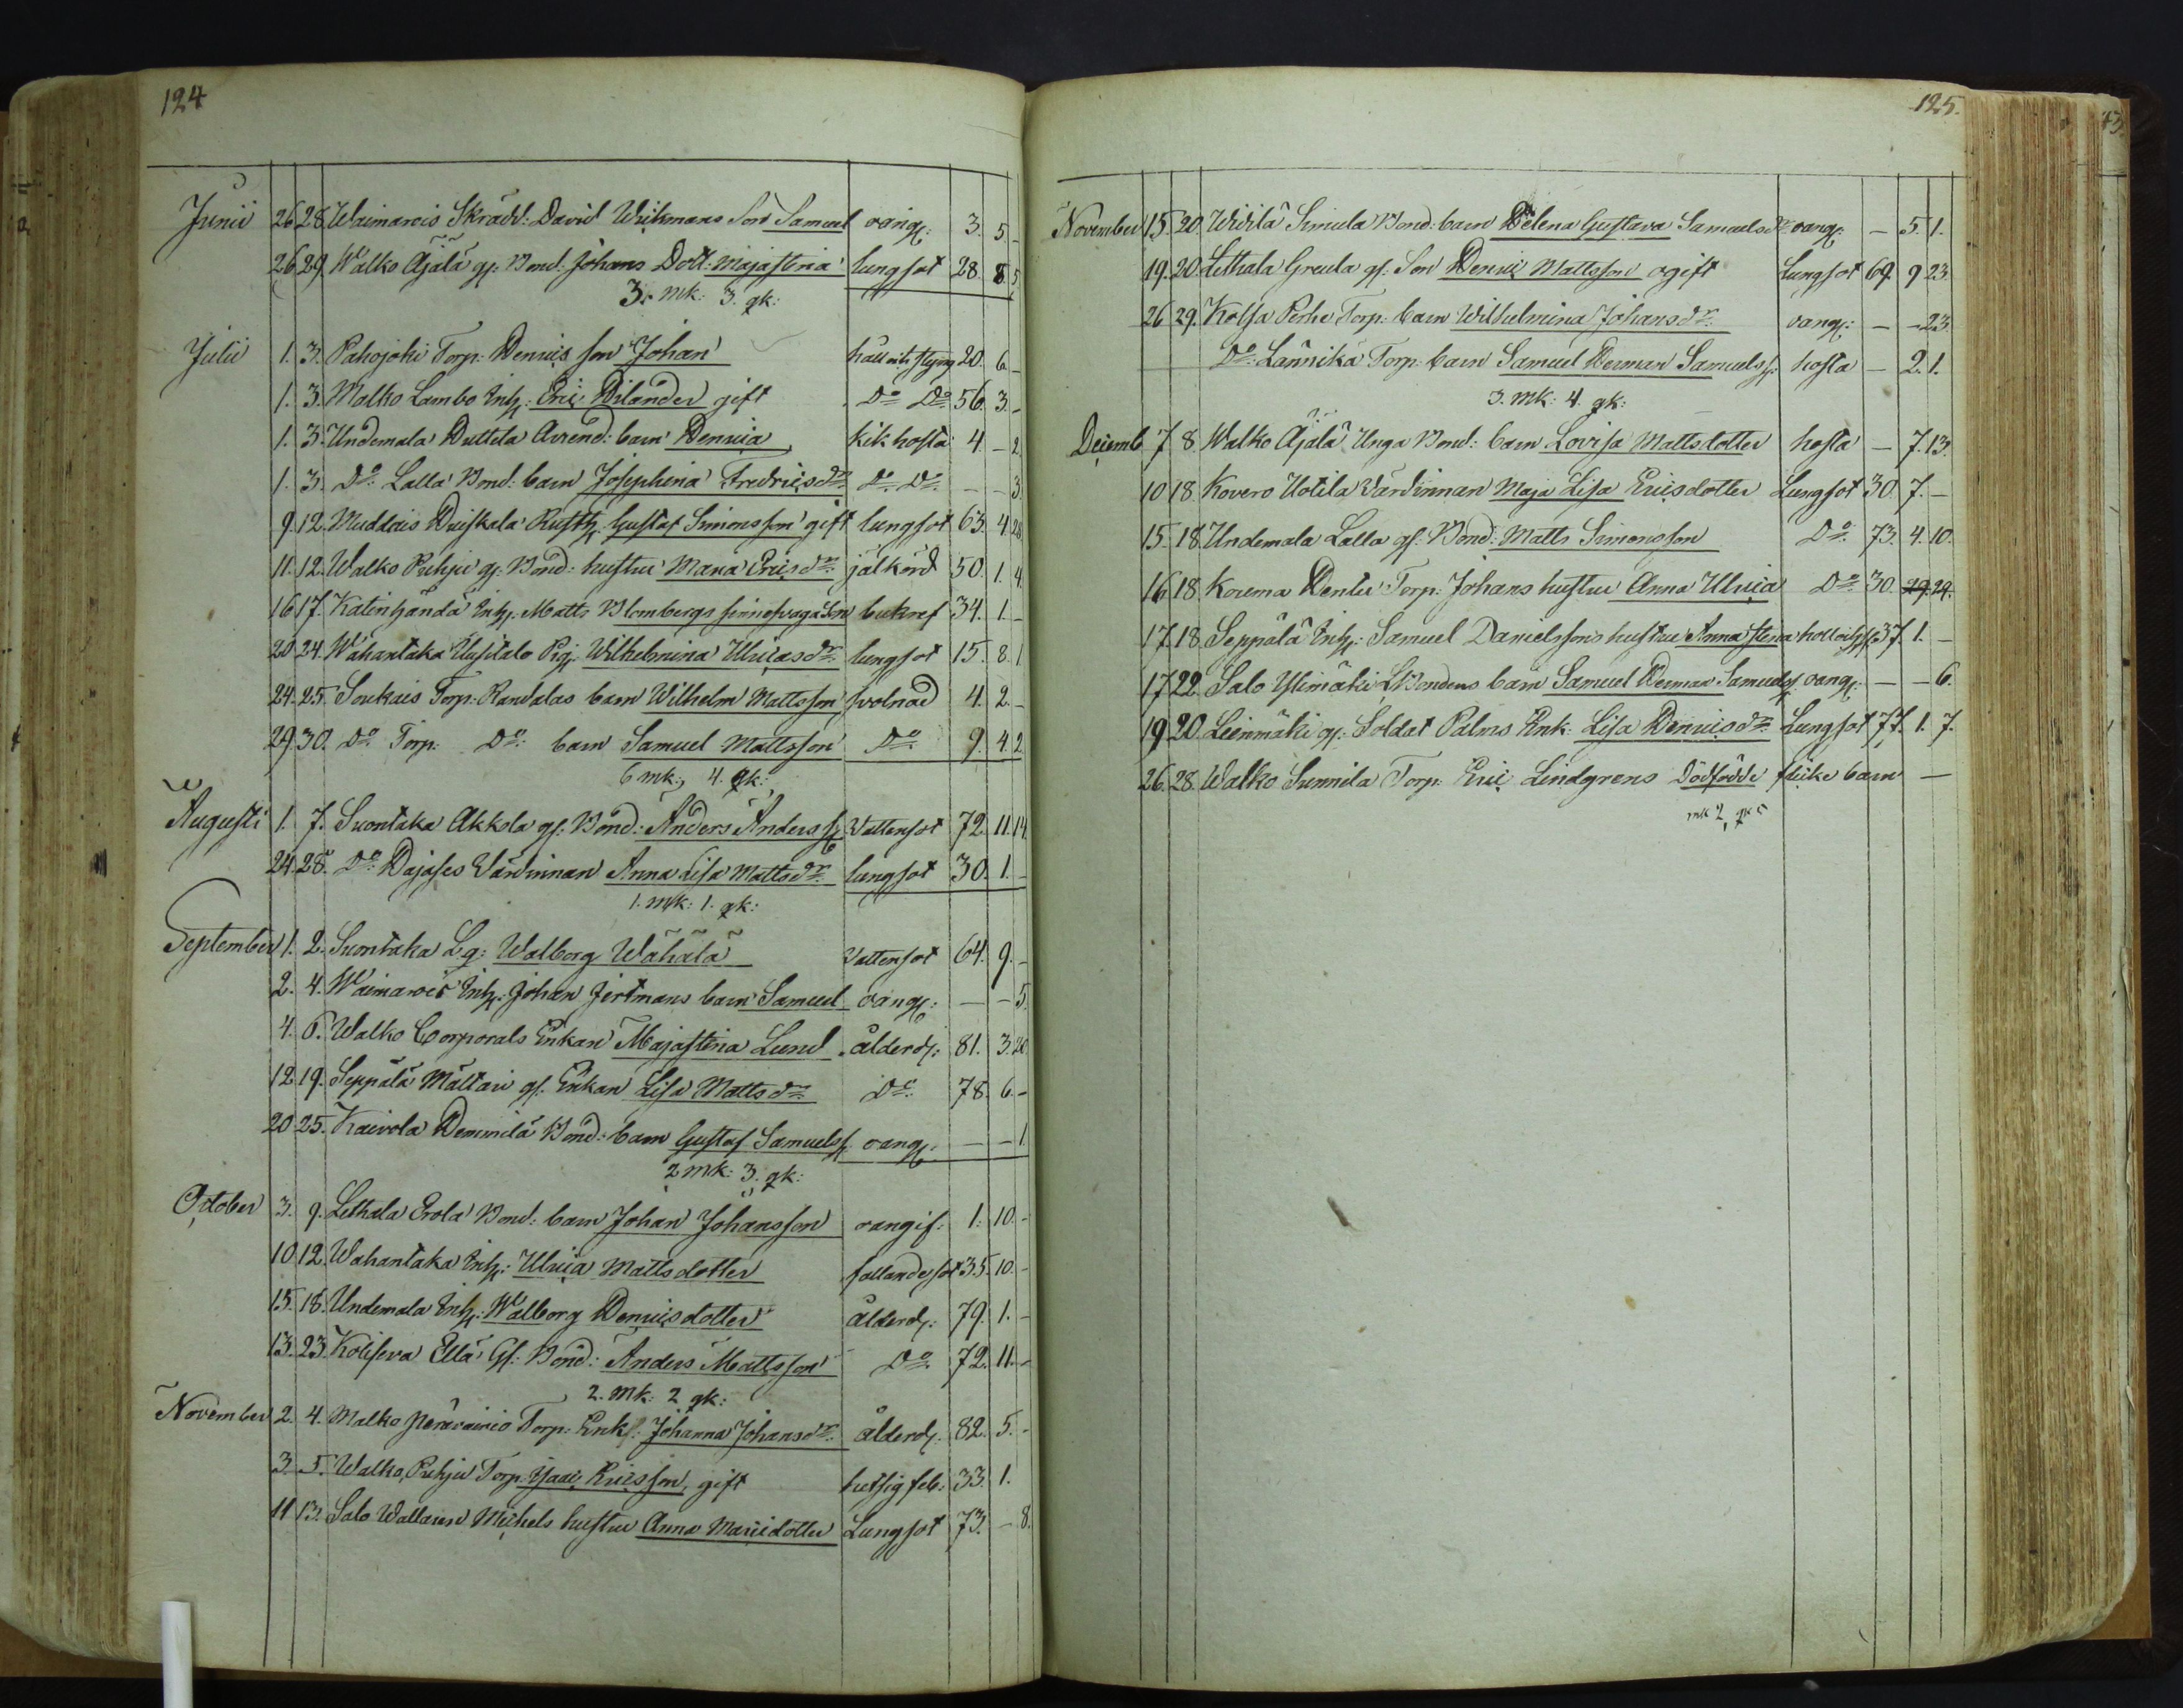 124
Junii 26. 28. Waimarois Skrädd: David Wickmans Son Samuel oangif: 3. 5. -
26. 29. Walko Äjälä gf: Bond: Johans Dott: Majastina lungsot 28. 8. 5
3. mk: 3. qk:
Julii 1. 3. Pahojoki Torp: Henrics son Johan håll och styng 20. 6. -
1. 3. Malko Lambo Inh: Eric Hilander gift Do Do 56. 3. -
1. 3. Undemala Huttela Arrend: barn Henrica kikhosta 4. - 2
1. 3. Do Lalla Bond: barn Josephina Fredricsdr Do Do - - 3.
9. 12. Muddais Huiskala Rusth: Gustaf Simonsson gift lungsot 63. 4. 28
11. 12. Walko Puhju gf: Bond: hustru Maria Ericsdr 50. 1. 4.
16. 17. Katinhändä Inh: Matts Blombergs Son bukref 34. 1. -
20. 24. Wahantaka Uusitalo Pig: Wilhelmina Ulricasdr lungsot 15. 8. 1
24. 25. Soukais Torp: Randalas barn Wilhelm Mattsson svolnad 4. 2. -
29. 30. Do Torp: Do barn Samuel Mattsson Do 9. 4. 2
6 mk: 4. qk:
Augusti 1. 7. Suontaka Akkola gf: Bond: Anders Anderss: Vattensot 72. 11. 14
24. 28. Do Dajases Värdinnan Anna Lisa Mattsdr lungsot 30. 1. -
1. mk: 1. qk:
September 1. 2. Suontaka Lq: Walborg Wähälä Vattensot 64. 9. -
2. 4. Waimarois Inh: Johan Jertmans barn Samuel oangif: - - 5.
4. 6. Walko Corporals Enkan Majastina Lund ålderd: 81. 3. 20
12. 19. Seppälä Mältäri gf. Enkan Lisa Mattsdr Do 78. 6. -
20. 25. Kaivola Hemmilä Bond: barn Gustaf Samuelss: oangif: - - 1
2 mk: 3. qk:
October 3. 9. Lethala Erola Bond: barn Johan Johansson oangif: 1. 10. -
10. 12. Wahantaka Inh: Ulrica Mattsdotter fallandesot 35. 10. -
15. 18. Undemala Inh: Walborg Henricsdotter ålderd: 79. 1. -
13. 23. Koliseva Ellä Gf: Bond: Anders Mattsson Do 72. 11. -
2. mk: 2 qk:
November 2. 4. Malko Perävainio Torp: Enk: Johanna Johansdr ålderd: 82. 5. -
3. 5. Walko, Puhju Torp: Isaac Ericsson, gift hetsig feb: 33. 1.
11. 13. Salo Wallaren Michels hustru Anna Maricidotter Lungsot 73. - 8.
125.
November 15. 20. Widilä Simula Bond: barn Helena Gustava Samuelsdr oangif: - 5. 1.
19. 20. Lethala Greula gf: Son Henric Mattsson ogift Lungsot 69. 9 23.
26. 29. Kolsa Perhe Torp: barn Wilhelmina Johansdr oangif: - - 23.
Do: Lännikä Torp: barn Samuel Herman Samuelss: hosta - 2. 1.
3. mk: 4. qk:
Decemb 7. 8. Walko Äjälä Unga Bond: barn Lovisa Mattsdotter hosta - 7. 13.
10. 18. Kovero Uotila Värdinnan Maja Lisa Ericsdotter Lungsot 30. 7. -
15. 18. Undemala Lalla gf: Bond: Matts Simonsson Do 73. 4. 10.
16. 18. Kouma Torp: Johans hustru Anna Ulrica Do 30. 29. 29.
17. 18. Seppälä Inh: Samuel Danielssons hustru Anna Stina 37. 1. -
17. 22. Salo Ylimäki Bondens barn Samuel Herman Samuelss: oangif: - - 6.
19. 20. Leinmäki gf: Soldat Palms Enk: Lisa Henricsdr Lungsot 77. 1. 7.
26. 28. Walko Sunnila Torp: Eric Lindgrens dödfödde flicke barn -
mk 2, qk 5